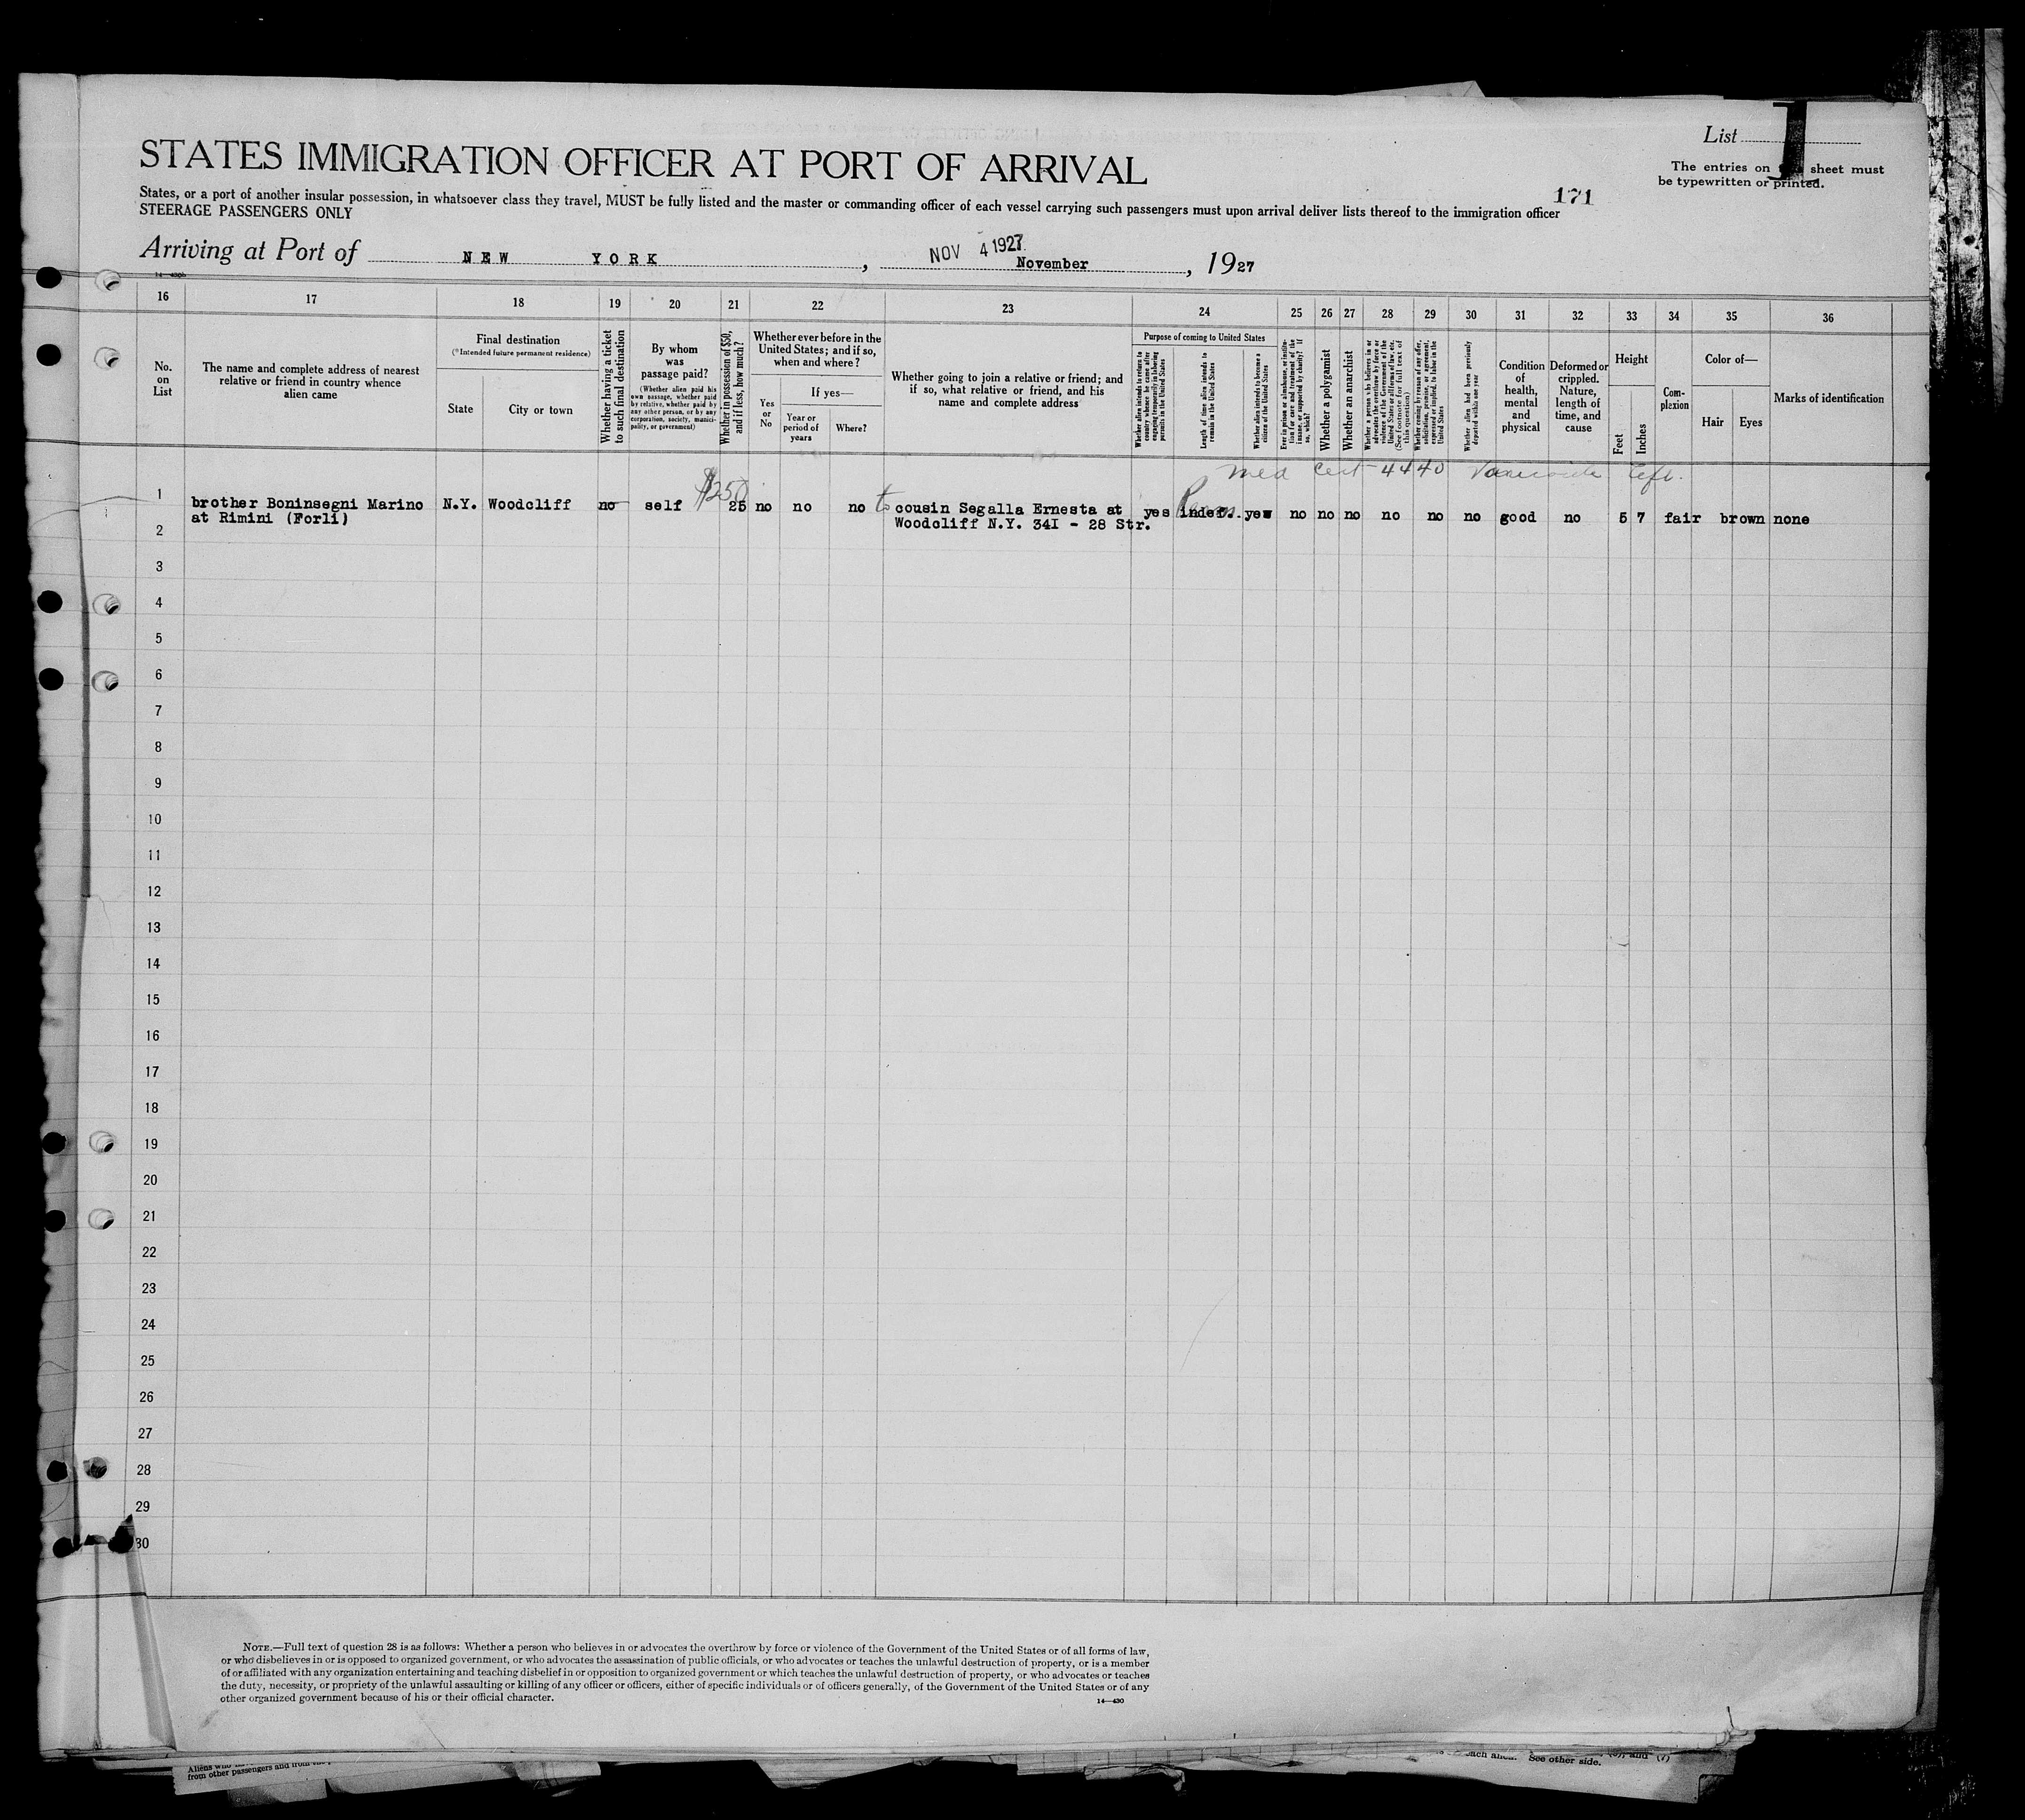 List I
The entries on sheet must
be typewritten or printed.
STATES IMMIGRATION OFFICER AT PORT OF ARRIVAL
171
States, or a port of another insular possession, in whatsoever class they travel, MUST be fully listed and the master or commanding officer of each vessel carrying such passengers must upon arrival deliver lists thereof to the immigration officer
STEERAGE PASSENGERS ONLY
Arriving at Port of NEW YORK, NOV 4 1927 November, 1927
16 17 18 19 20 21 22 23 24 25 26 27 28 29 30 31 32 33 34 35 36
No.
on
List
The name and complete address of nearest
relative or friend in country whence
alien came
Final destination
(*Intended future permanent residence)
State
City or town
Whether having a ticket
to such final destination
By whom
was
passage paid?
(Whether alien paid his
own passage, whether paid
by relative, whether paid by
any other person, or by any
corporation, society, munici-
pality, or government)
Whether in possession of $50,
and if less, how much?
Whether ever before in the
United States; and if so,
when and where?
Yes
or
No
If yes—
Year or
period of
years
Where?
Whether going to join a relative or friend; and
if so, what relative or friend, and his
name and complete address
Purpose of coming to United States
Whether alien intends to return to
country whence he came after
engaging temporarily in laboring
pursuits in the United States
Length of time alien intends to
remain in the United States
Whether alien intends to become a
citizen of the United States
Ever in prison or almshouse, or institu-
tion for care and treatment of the
insane, or supported by charity? If
so, which?
Whether a polygamist
Whether an anarchist
Whether a person who believes in or
advocates the overthrow by force or
violence of the Government of the
United States or all forms of law, etc.
(See footnote for full text of
this question)
Whether coming by reason of any offer,
solicitation, promise, or agreement,
expressed or implied, to labor in the
United States
Whether alien had been previously
deported within one year
Condition
of
health,
mental
and
physical
Deformed or
crippled.
Nature,
length of
time, and
cause
Height
Feet
Inches
Com-
plexion
Color of—
Hair
Eyes
Marks of identification
med cert 4440 Varicocele left.
1 brother Boninsegni Marino N.Y. Woodcliff no self $250 25 no no no to cousin Segalla Ernesta at yes indef. yes no no no no no no good no 5 7 fair brown none
at Rimini (Forli) Woodcliff N.Y. 34I - 28 Str.
2
3
4
5
6
7
8
9
10
11
12
13
14
15
16
17
18
19
20
21
22
23
24
25
26
27
28
29
30
NOTE.—Full text of question 28 is as follows: Whether a person who believes in or advocates the overthrow by force or violence of the Government of the United States or of all forms of law,
or who disbelieves in or is opposed to organized government, or who advocates the assassination of public officials, or who advocates or teaches the unlawful destruction of property, or is a member
of or affiliated with any organization entertaining and teaching disbelief in or opposition to organized government or which teaches the unlawful destruction of property, or who advocates or teaches
the duty, necessity, or propriety of the unlawful assaulting or killing of any officer or officers, either of specific individuals or of officers generally, of the Government of the United States or of any
other organized government because of his or their official character.
14—430
from other passengers and
See other side.